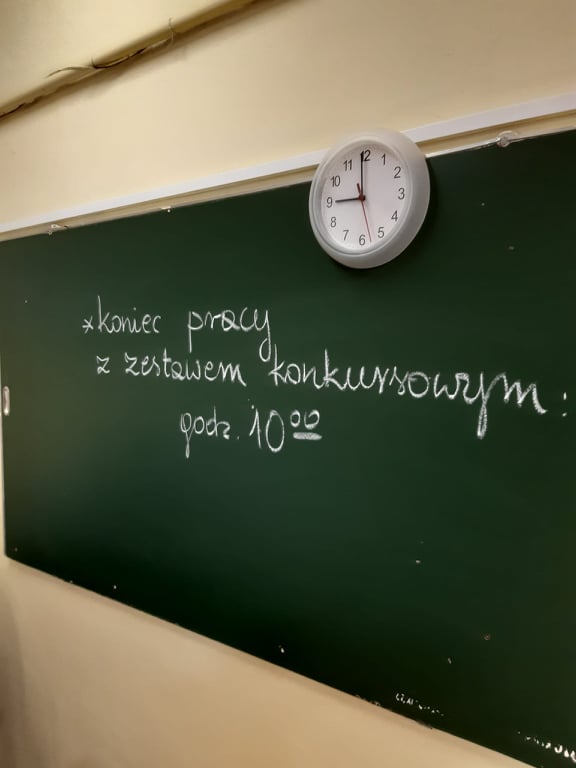 12
11 1
10 2
9 3
8 4
7 5
6
*koniec pracy
z zestawem konkursowym:
godz. 10⁰⁰